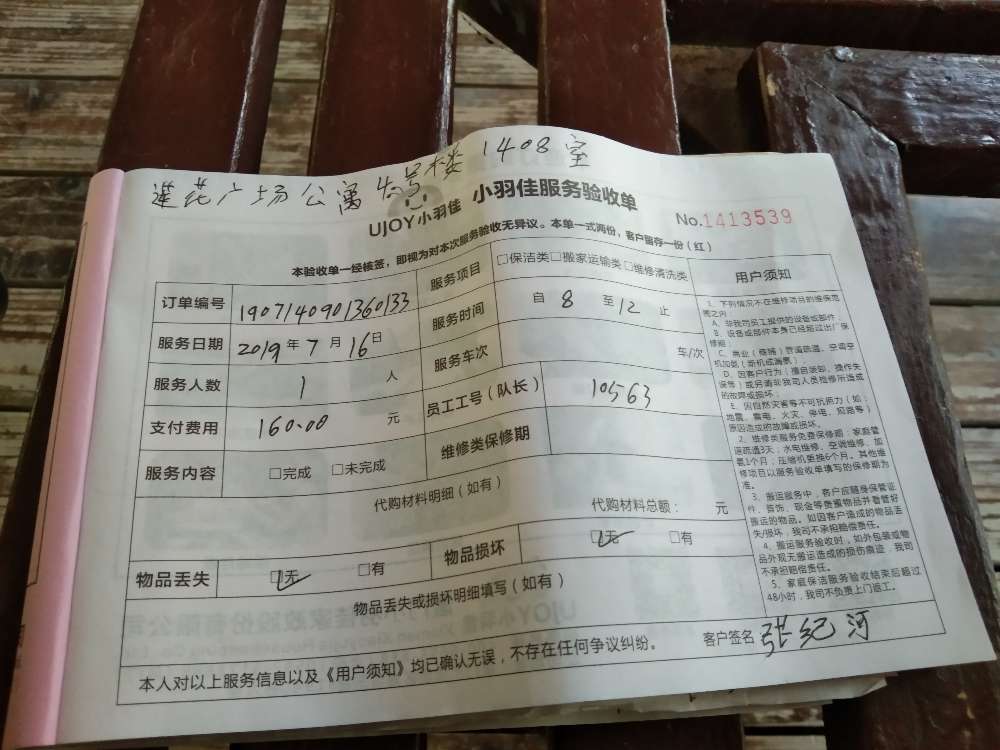 莲花广场公寓 号楼 1408室
UJOY小羽佳 小羽佳服务验收单
No.1413539
本验收单一经核签，即视为对本次服务验收无异议。本单一式两份，客户留存一份（红）
订单编号 1907140901360133 服务项目 □保洁类□搬家运输类□维修清洗类
服务日期 2019年7月16日 服务时间 自8至12止
服务人数 1人 服务车次 车/次
支付费用 160.00元 员工工号（队长） 10563
服务内容 □完成 □未完成 维修类保修期
代购材料明细（如有） 代购材料总额： 元
物品丢失 ☑无 □有 物品损坏 ☑无 □有
物品丢失或损坏明细填写（如有）
用户须知
1、下列情况不在维修项目的维保范
围之内：
A、非我司员工提供的设备或部件；
B、设备或部件本身已经超过出厂保
修期；
C、商业（商铺）管道疏通、空调空
机加氨（新机或漏氨）
D、因客户行为（擅自拆卸、操作失
误等）或另请非我司人员检修所造成
的故障或损坏；
E、因自然灾害等不可抗原力（如：
地震、雷电、火灾、停电、短路等）
原因造成的故障或损坏。
2、维修类服务免费保修期：家庭管
道疏通3天；水电维修、空调维修、加
氨1个月；压缩机更换6个月。其他维
修项目以服务验收单填写的保修期为
准。
3、搬运服务中，客户应随身保管证
件、首饰、现金等贵重物品并看管好
搬运的物品。如因客户造成的物品丢
失/损坏，我司不承担赔偿责任。
4、搬运服务验收时，如外包装或物
品外观无搬运造成的损伤痕迹，我司
不承担赔偿责任。
5、家庭保洁服务验收结束后超过
48小时，我司不负责上门返工。
本人对以上服务信息以及《用户须知》均已确认无误，不存在任何争议纠纷。 客户签名 张纪河